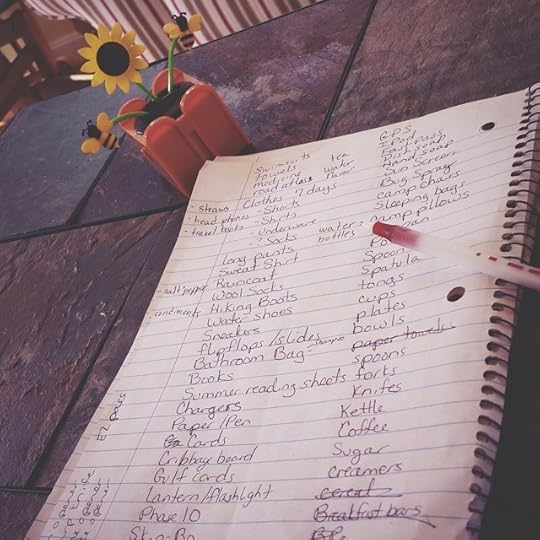 swimsuits
towels
medicine
road atlas
Clothes 7 days
- Shorts
- Shirts
- Underware
- ? Socks
long pants
Sweat Shirt
Raincoat
Wool Socks
Hiking Boots
Water shoes
Sneakers
flipflops/slides
Bathroom Bag - shampoo
Books
Summer reading sheets
Chargers
Paper/Pen
Cards
Cribbage board
Gulf cards
lantern/flashlight
Phase 10
Skip-Bo
tea
water flavor
water bottles
- straws
- head phones
- travel books
- salt/pepper
- condiments
GPS
IPod
Fastpass
Dish soap
Hand soap
Sun Screen
Bug Spray
camp chairs
Sleeping bags
camp pillows
Pot pan
Spoon
Spatula
tongs
cups
plates
bowls
paper towels
spoons
forks
Knifes
Kettle
Coffee
Sugar
creamers
cereal
Breakfast bars